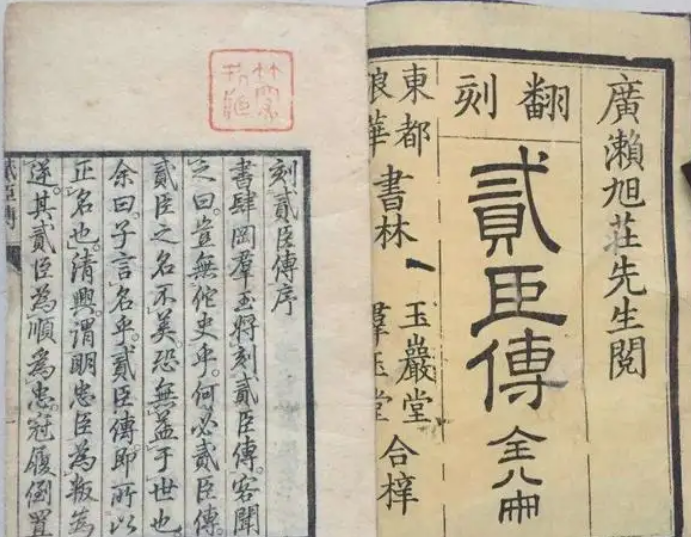 廣瀨旭荘先生閲
翻刻
貳臣傳全八冊
東都
浪華
書林
玉巖堂
羣玉堂
合梓
刻貳臣傳序
書肆岡羣玉將刻貳臣傳。客聞
之曰。豈無佗史乎。何必貳臣傳。
貳臣之名不美。恐無益于世也
余曰。子言名乎。貳臣傳卽所以
正名也。清興。謂明忠臣為叛。為
逆。其貳臣為順。為忠。冠履倒置